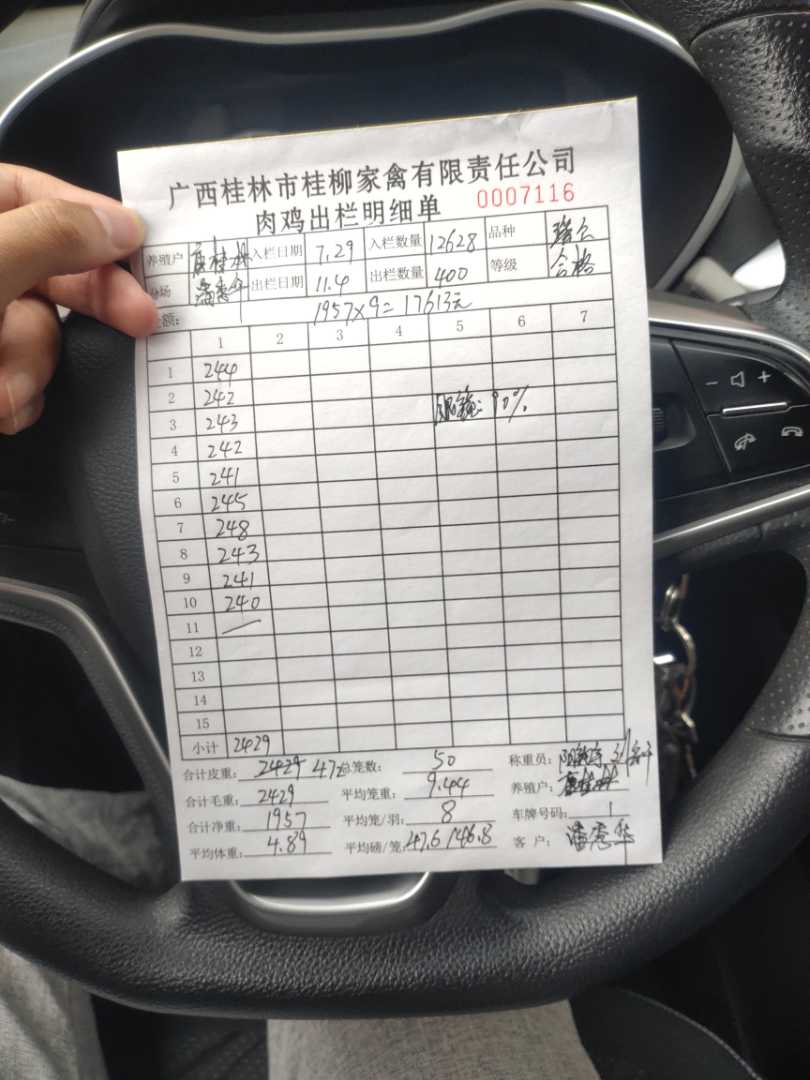 广西桂林市桂柳家禽有限责任公司
肉鸡出栏明细单 0007116
养殖户 入栏日期 7.29 入栏数量 12628 品种
场 潘 出栏日期 11.4 出栏数量 400 等级 合格
额: 1957×9=17613元
1 2 3 4 5 6 7
1 244
2 242
3 243 90%
4 242
5 241
6 245
7 248
8 243
9 241
10 240
11
12
13
14
15
小计 2429
合计皮重: 2429 472 总笼数: 50 称重员:
合计毛重: 2429 平均笼重: 9.44 养殖户:
合计净重: 1957 平均笼/羽: 8 车牌号码:
平均体重: 4.89 平均磅/笼: 47.6/46.8 客户: 潘